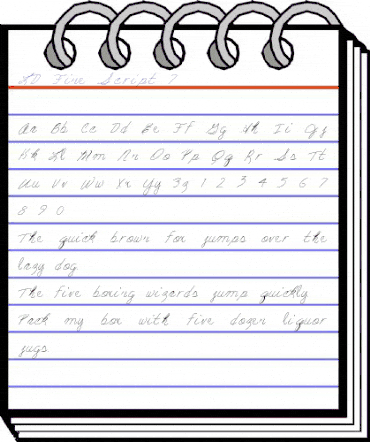 LD Fine Script 2
Aa Bb Cc Dd Ee Ff Gg Hh Ii Jj
Kk Ll Mm Nn Oo Pp Qq Rr Ss Tt
Uu Vv Ww Xx Yy Zz 1 2 3 4 5 6 7
8 9 0
The quick brown fox jumps over the
lazy dog.
The five boxing wizards jump quickly.
Pack my box with five dozen liquor
jugs.